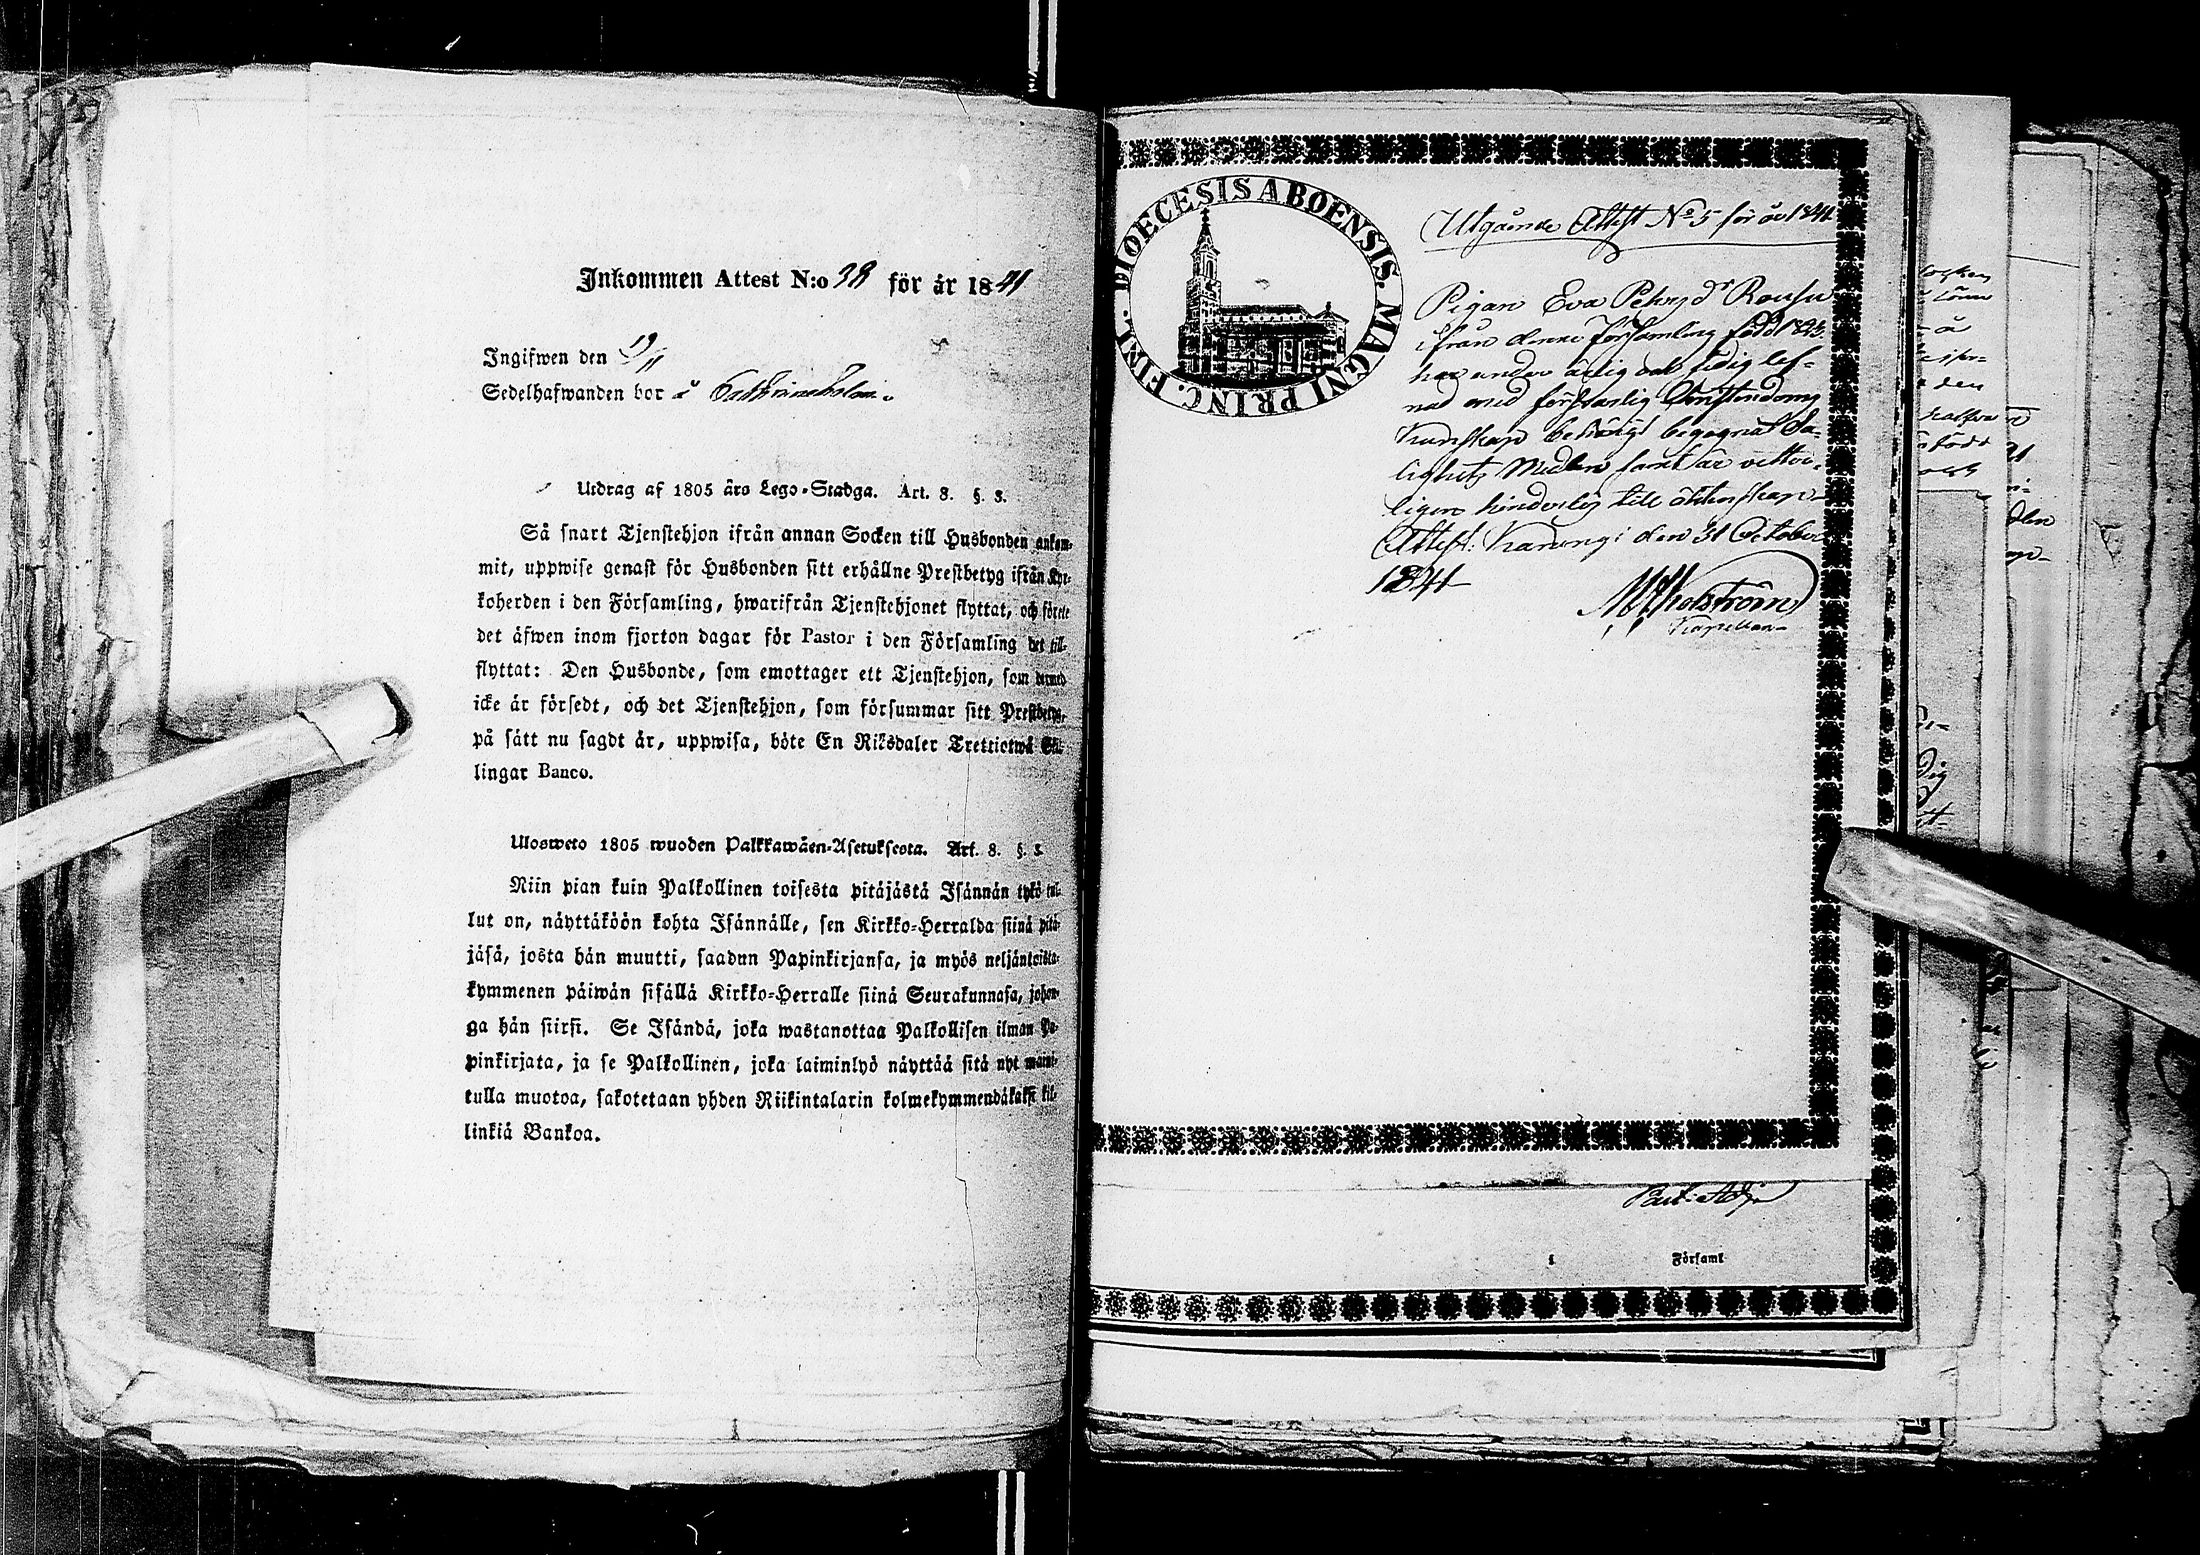 Inkommen Attest N:o 38 för år 1841
Ingifwen den 19/11
Sedelhafwanden bor å
Utdrag af 1805 års Lego-Stadga. Art. 8. §. 3.
Så snart Tjenstehjon ifrån annan Socken till Husbonden ankom-
mit, uppwise genast för Husbonden sitt erhållne Prestbetyg ifrån Kyr-
koherden i den Församling, hwarifrån Tjenstehjonet flyttat, och förete
det äfwen inom fjorton dagar för Pastor i den Församling det till-
flyttat: Den Husbonde, som emottager ett Tjenstehjon, som dermed
icke är försedt, och det Tjenstehjon, som försummar sitt Prestbetyg,
på sätt nu sagdt är, uppwisa, böte En Riksdaler Trettiotwå Skil-
lingar Banco.
Ulosweto 1805 wuoden Palkkawäen-Asetuksesta. Art. 8. §. 3.
Niin pian kuin Palkollinen toisesta pitäjästä Isännän tykö tul-
lut on, näyttäköön kohta Isännälle, sen Kirkko-Herralda siinä pitä-
jäsä, josta hän muutti, saadun Papinkirjansa, ja myös neljäntoista-
kymmenen päiwän sisällä Kirkko-Herralle siinä Seurakunnasa, johon-
ga hän siirsi. Se Isändä, joka wastanottaa Palkollisen ilman Pa-
pinkirjata, ja se Palkollinen, joka laiminlyö näyttää sitä nyt maini-
tulla muotoa, sakotetaan yhden Riikintalarin kolmekymmendäkaksi kil-
linkiä Bankoa.
DIOECESIS ABOENSIS. MAGNI PRINC. FINL.
Utgående Attest No 5 för år 1841
Pigan Eva Pehrsdr Rousu
ifrån denne Församling född 1823
har under ärlig och sedig lef-
nad med försvarlig Christendoms
Kunskap behörigt begagnat Sa-
lighets Medlen samt är vetter-
ligen hinderlös till äktenskap.
Attest. Karungi den 31 October
1841
Kapellan
i Församl